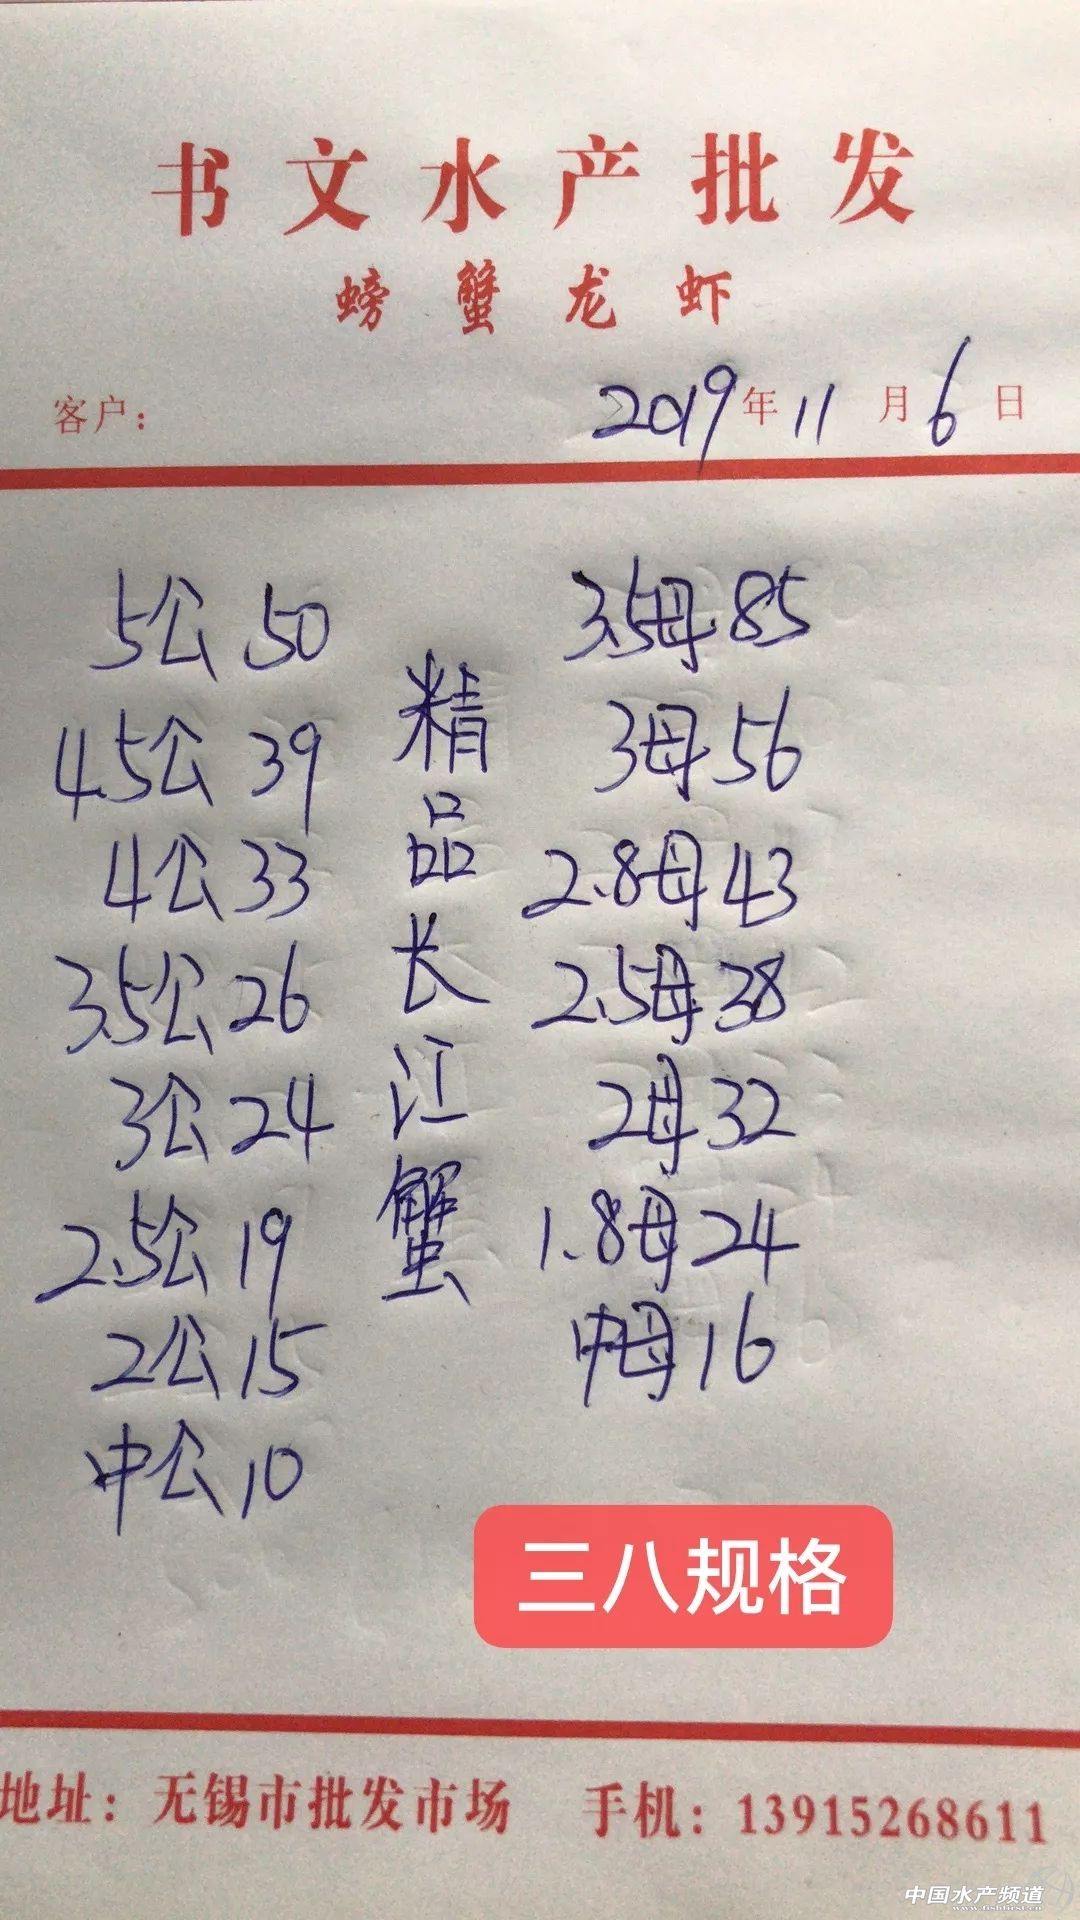 书文水产批发
螃蟹龙虾
客户： 2019年11月6日
5公 50
4.5公 39
4公 33
3.5公 26
3公 24
2.5公 19
2公 15
中公 10
精品长江蟹
3.5母 85
3母 56
2.8母 43
2.5母 38
2母 32
1.8母 24
中母 16
三八规格
地址：无锡市批发市场 手机：13915268611
中国水产频道
www.fishfirst.cn